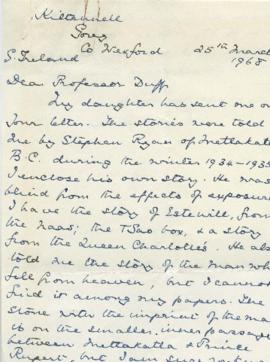 Kiltannell
Gorey
Co Wexford 25th March
S. Ireland 1968
Dear Professor Duff,
My daughter has sent me on
your letter. The stories were told
me by Stephen Ryan of Metlakatla
B.C. during the winter 1934-1935
I enclose his own story. He was
blind from the effects of exposure
I have the story of Estewill, from
the Naas; the TSao box, & a story
from the Queen Charlotte's. He also
told me the story of the man who
fell from heaven, but I cannot
find it among my papers. The
stone with the imprint of the man
is on the smaller, inner passage
between Metlakatla & Prince
Rupert, but I am